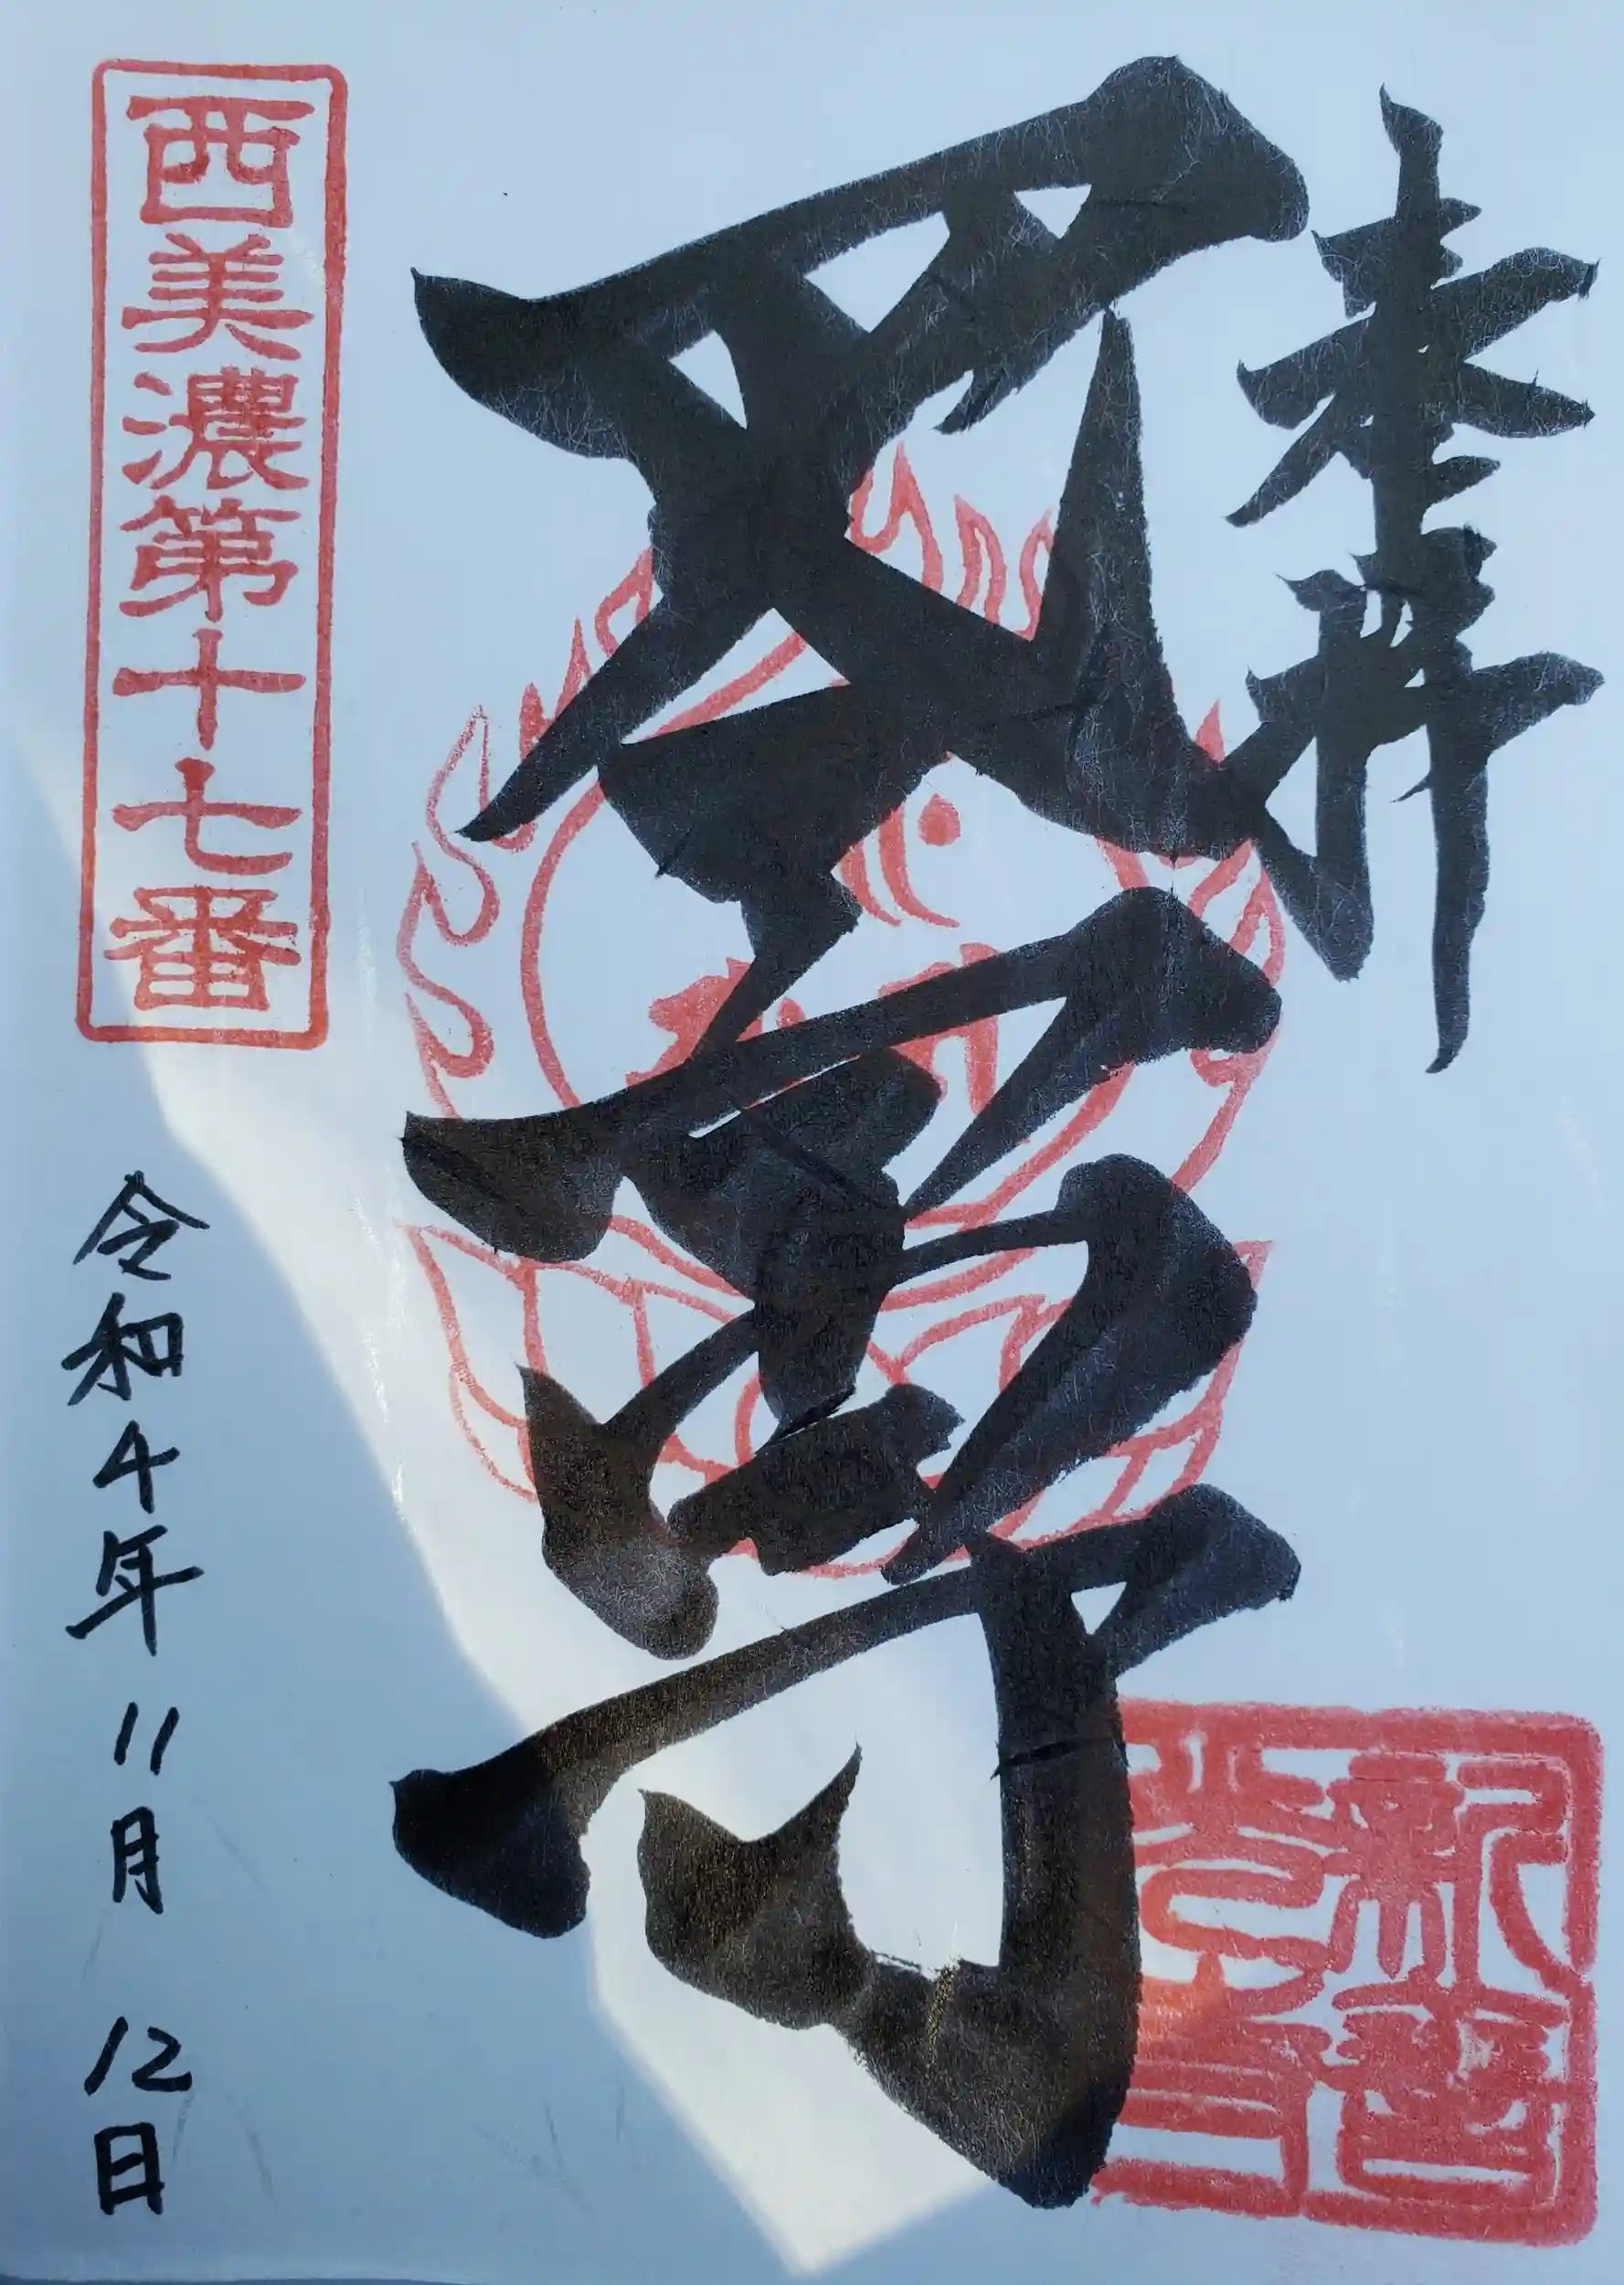 奉拝
尊
西美濃第十七番
令和4年11月12日
新善
光寺